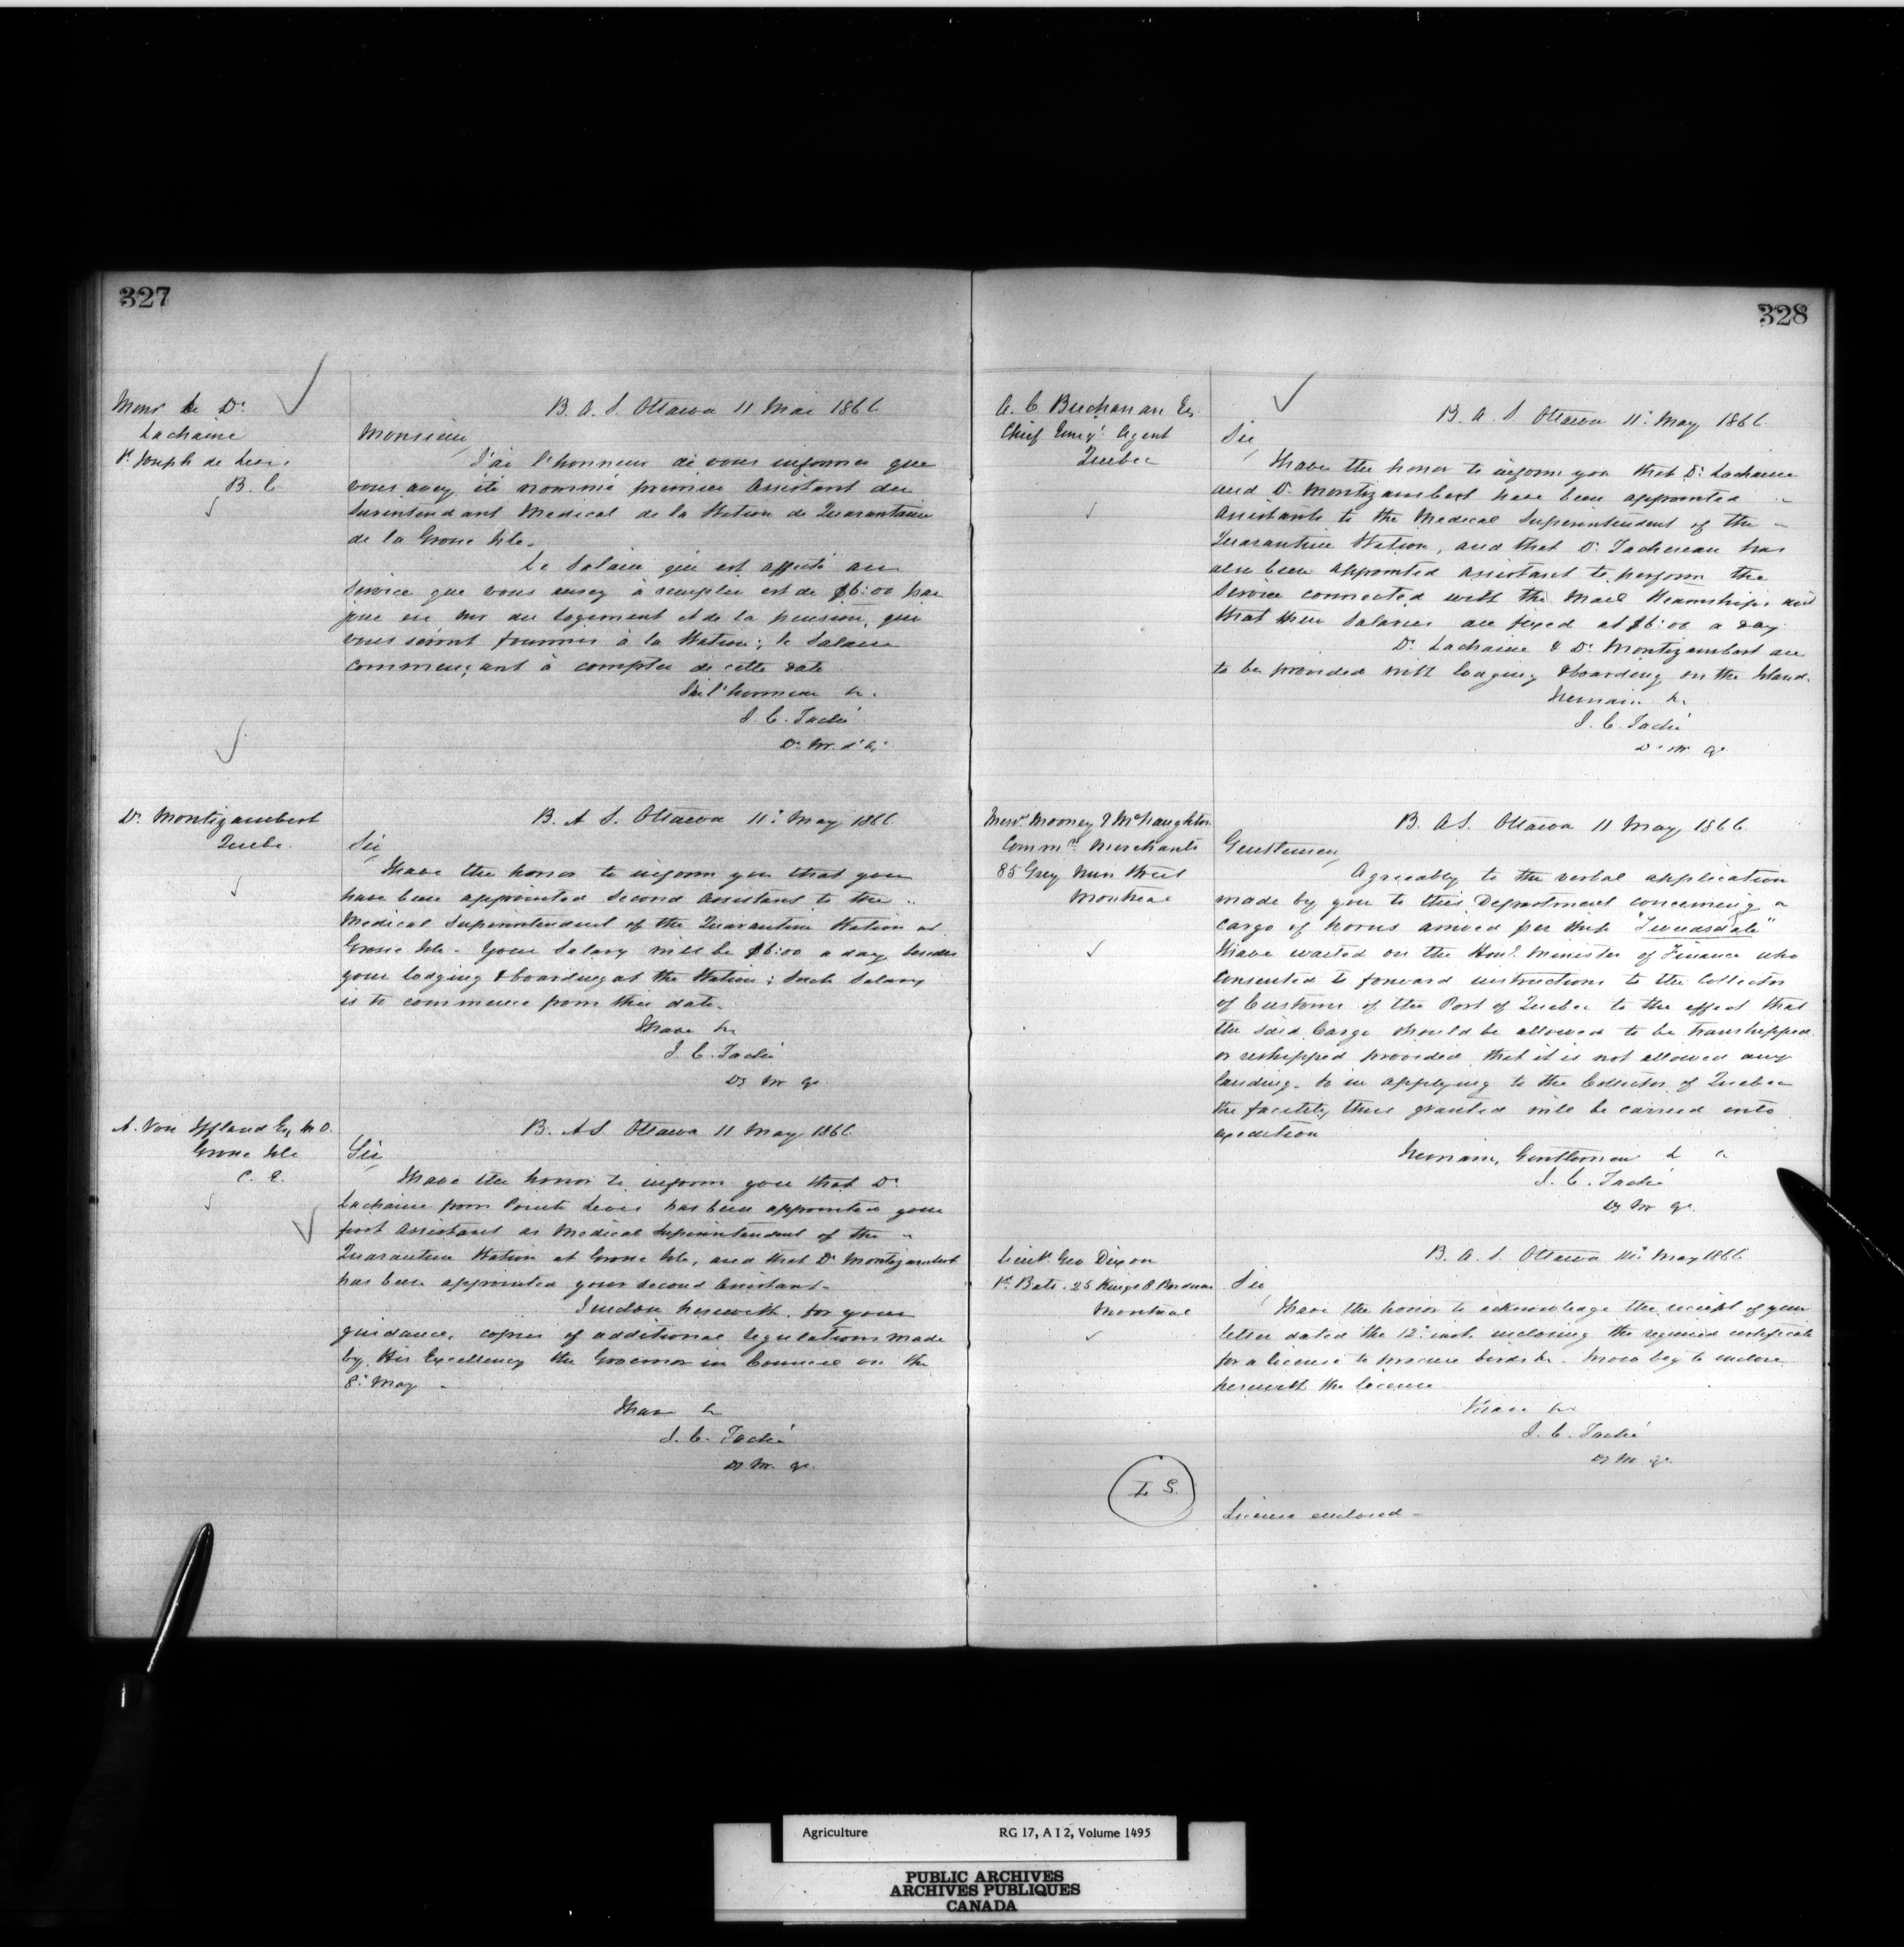 327
Monsr Le Dr.
Lachaine
St Joseph de Levi.
B. C
B. A. S. Ottawa 11 Mai 1866
Monsieur,
J'ai l'honneur de vous informer que
vous avez été nommé premier Assistant du
Surintendant Medical de la Station de Quarantaine
de la Grosse Isle.
Le Salaire qui est affecté au
Service que vous aurez à remplir est de $6:00 par
jour en sus du logement et de la pension, qui
vous seront fournis à la Station; le Salaire
commençant à compter de cette date
J'ai l'honneur &.
J. C. Taché
D. M. d'A.
Dr. Montizambert
Quebec.
B. A. S. Ottawa 11. May 1866.
Sir,
I have the honor to inform you that you
have been appointed Second Assistant to the
Medical Superintendent of the Quarantine Station at
Grosse Isle - Your Salary will be $6:00 a day, besides
your lodging & boarding at the Station; Such Salary
is to commence from this date.
I have &c
J. C. Taché
Dy M. Ag.
A. Von Iffland Esq M.D.
Grosse Isle
C. E.
B. A. S. Ottawa 11 May 1866
Sir,
I have the honor to inform you that Dr.
Lachaine from Pointe Levis has been appointed your
first Assistant as Medical Superintendent of the
Quarantine Station at Grosse Isle, and that Dr. Montizambert
has been appointed your Second Assistant.
I inclose herewith, for your
guidance, copies of additional regulations made
by His Excellency the Governor in Council on the
8th May -
I have &
J. C. Taché
Dy M. Ag.
328
A. C. Buchanan Esq.
Chief Emigt. Agent
Quebec
B. A. S. Ottawa 11. May 1866
Sir,
I have the honor to inform you that Dr. Lachaine
and Dr. Montizambert have been appointed
Assistants to the Medical Superintendent of the
Quarantine Station, and that Dr. Tachereau has
also been appointed Assistant to perform the
Service connected with the Mail Steamships and
that their Salaries are fixed at $6:00 a day.
Dr. Lachaine & Dr. Montizambert are
to be provided with lodging & boarding on the Island.
I remain &c
J. C. Taché
D. M. Ag.
Messrs Mooney & McNaughton
Commn. Merchants
85 Grey Nun Street
Montreal
B. A S. Ottawa 11 May 1866.
Gentlemen,
Agreeably to the verbal application
made by you to this Department concerning a
cargo of horns arrived per Ship "Tweedsdale"
I have waited on the Honl. Minister of Finance who
consented to forward instructions to the Collector
of Customs of the Port of Quebec to the effect that
the said Cargo should be allowed to be transhipped
or reshipped provided that it is not allowed any
landing. So in applying to the Collector of Quebec
the facility thus granted will be carried into
expedition
I remain, Gentlemen &c
J. C. Taché
Dy M Ag.
Lieut. Geo Dixon
1st Batt. 25 Kings O. Borderers
Montreal
B. A. S. Ottawa May 1866.
Sir,
I have the honor to acknowledge the receipt of your
letter dated the 12th inst. inclosing the required certificate
for a license to procure birds &c. I now beg to enclose
herewith the license
I have &c
J. C. Taché
Dy M. Ag.
L S.
License enclosed -
Agriculture RG 17, A I 2, Volume 1495
PUBLIC ARCHIVES
ARCHIVES PUBLIQUES
CANADA